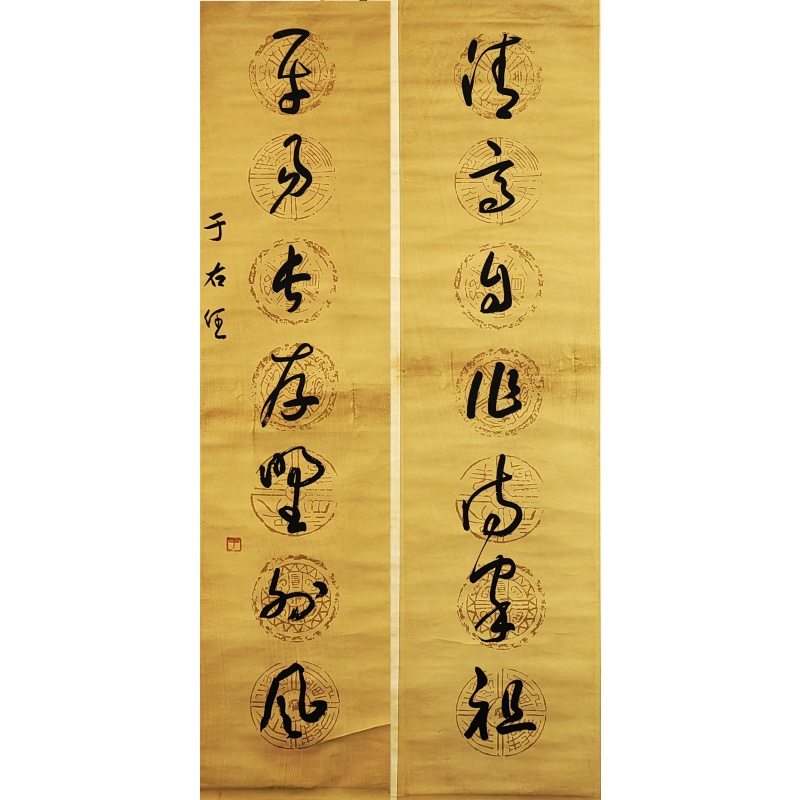 清高自作詩家祖
平易長存野外風
于右任